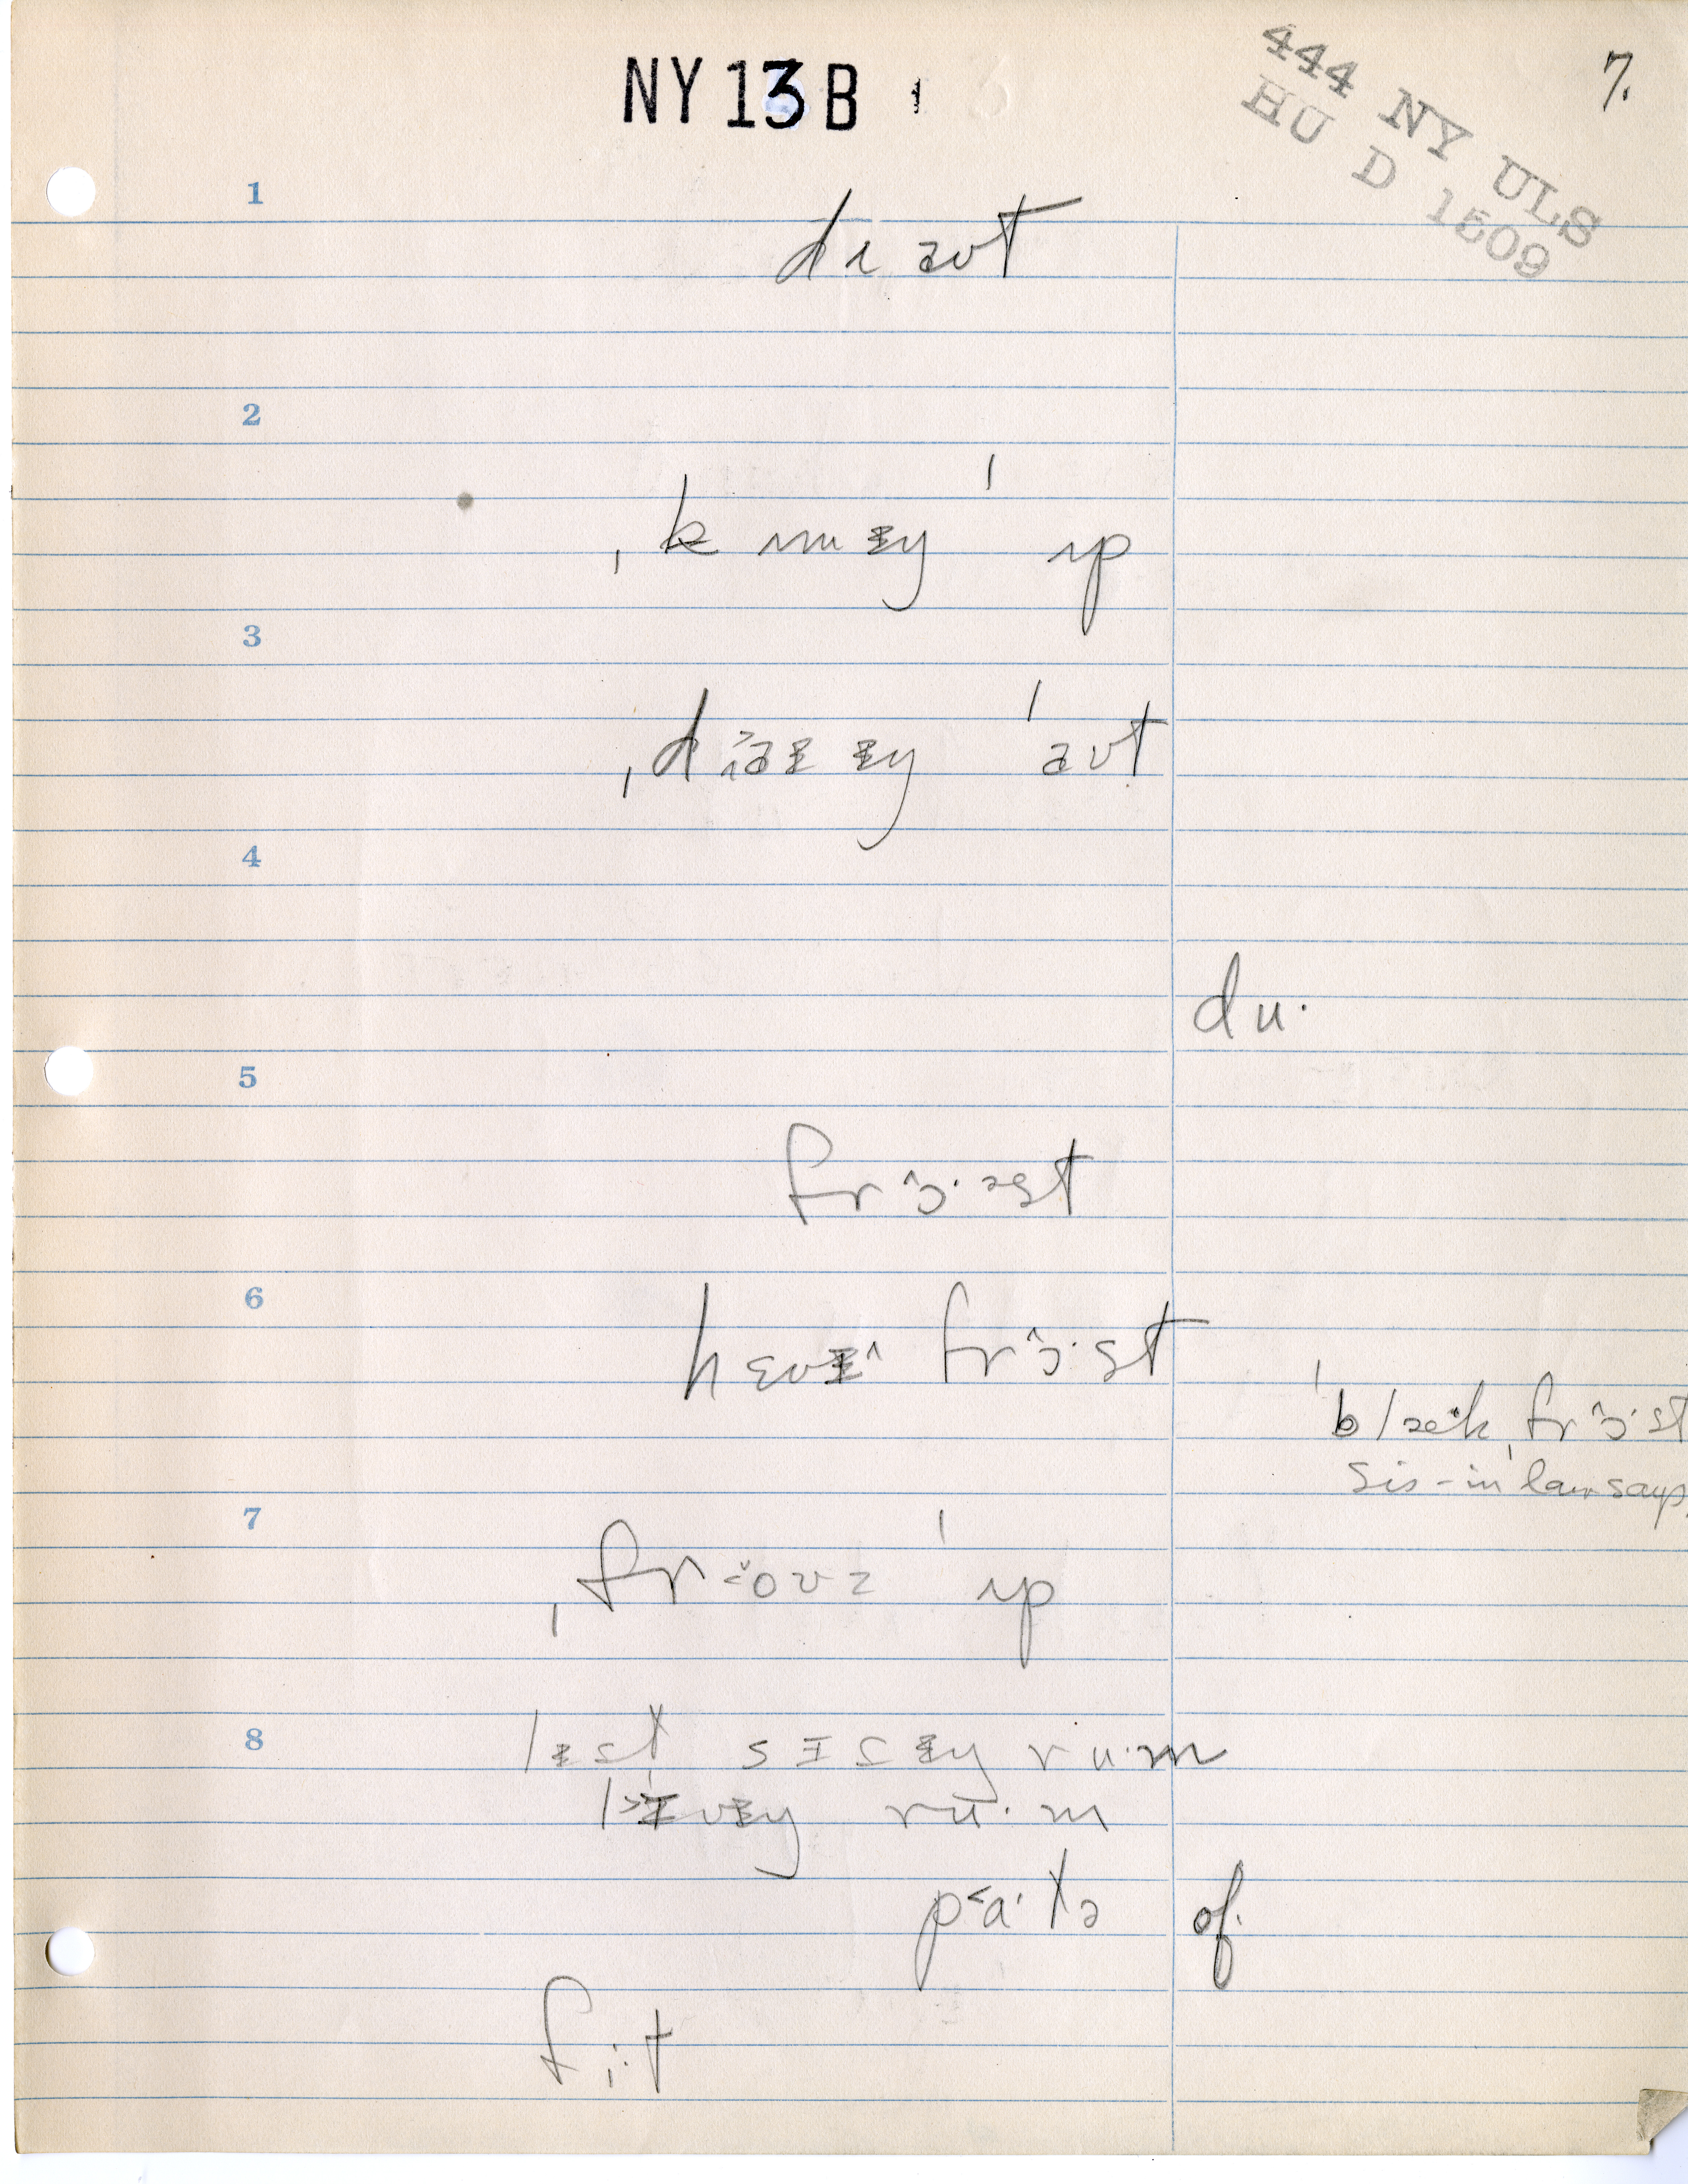 NY 13 B
444 NY ULS
HU D 1509
7.
1
dɹaʊt
2
ˌkʌmɨŋ ˈʌp
3
ˌdraɨɨŋ ˈaʊt
4
du·
5
frɔ̂·əst
6
hɛvɨ^ frɔ̂·st
ˈblæ·kˌfrɔ̂·st
sis-in law says.
7
ˌfr oʊz ˈʌp
8
sɪtɨŋ ru·m
lɪvɨŋ ru·m
p<a·tə
of.
fi·t